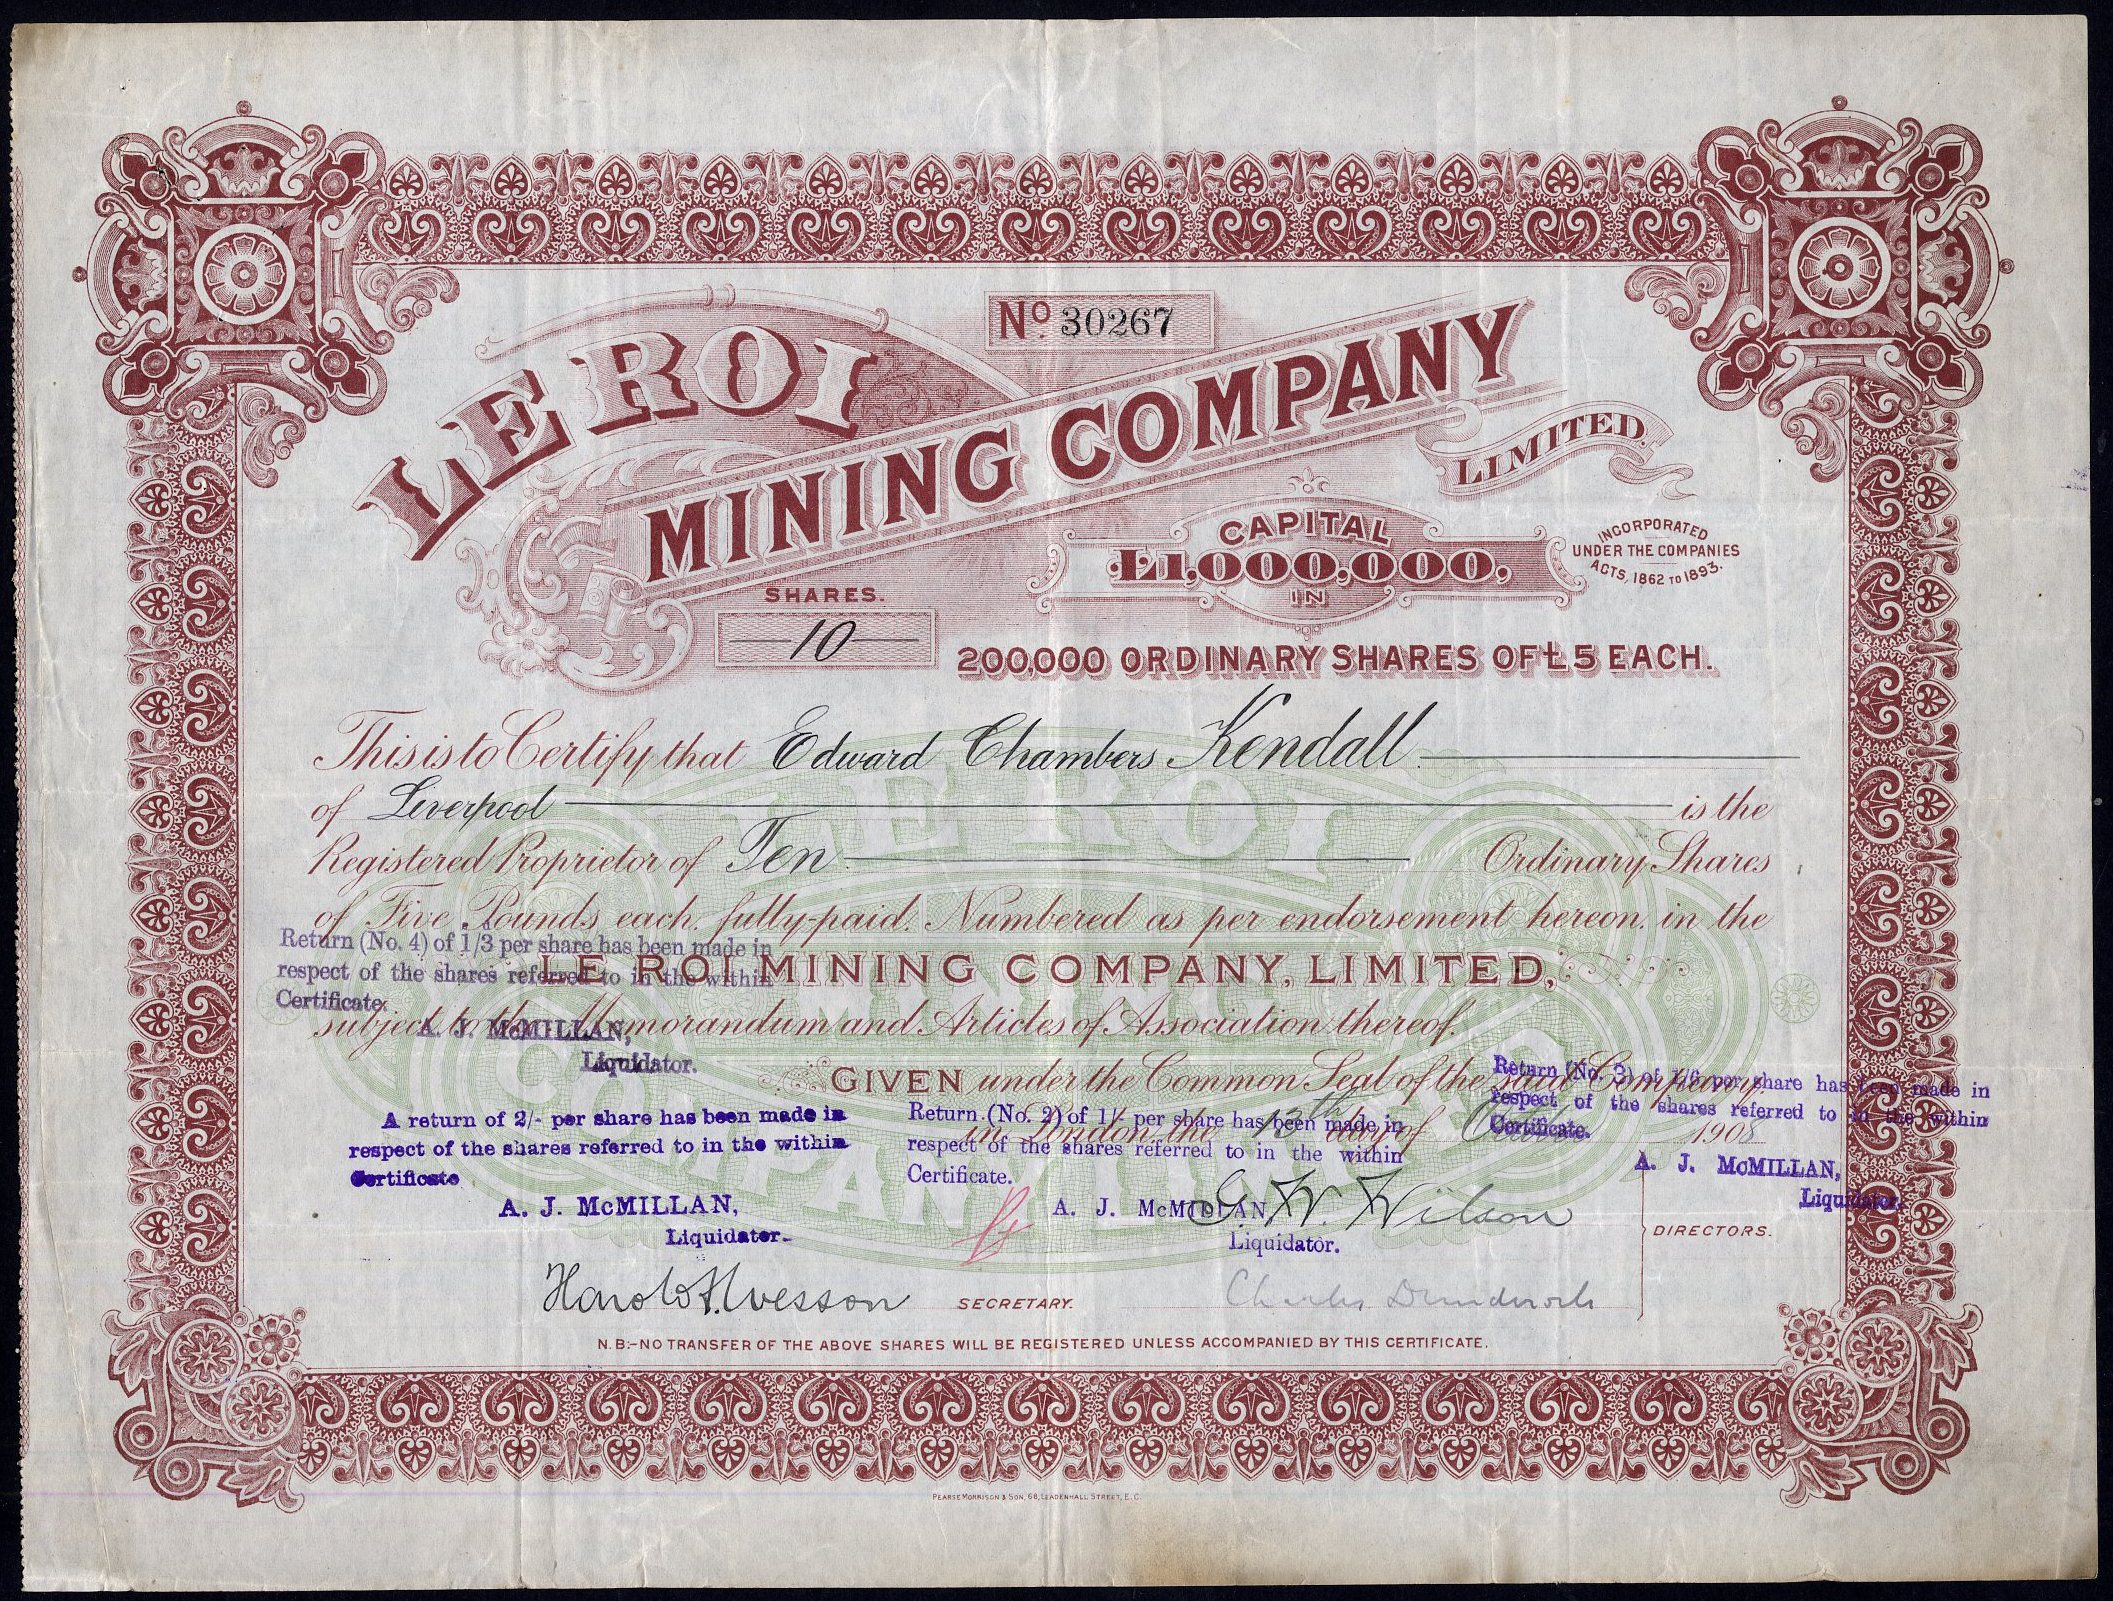 No. 30267
LE ROI
MINING COMPANY
LIMITED.
CAPITAL
£1,000,000,
IN
200,000 ORDINARY SHARES OF £5 EACH.
INCORPORATED
UNDER THE COMPANIES
ACTS, 1862 TO 1893.
SHARES.
10
This is to Certify that Edward Chambers Kendall
of Liverpool is the
Registered Proprietor of Ten Ordinary Shares
of Five Pounds each, fully-paid. Numbered as per endorsement hereon, in the
LE ROI MINING COMPANY, LIMITED,
subject to the Memorandum and Articles of Association thereof.
GIVEN under the Common Seal of the said Company
in London, the 13th day of 1908
Return (No. 4) of 1/3 per share has been made in
respect of the shares referred to in the within
Certificate.
A. J. McMILLAN,
Liquidator.
A return of 2/- per share has been made in
respect of the shares referred to in the within
Certificate
A. J. McMILLAN,
Liquidator.
Return (No. 2) of 1/- per share has been made in
respect of the shares referred to in the within
Certificate.
A. J. McMILLAN
Liquidator.
Return (No. 3) of 1/6 per share has been made in
respect of the shares referred to in the within
Certificate.
A. J. McMILLAN,
Liquidator.
G. W. Wilson
DIRECTORS.
SECRETARY.
Charles
N.B:-NO TRANSFER OF THE ABOVE SHARES WILL BE REGISTERED UNLESS ACCOMPANIED BY THIS CERTIFICATE.
PEARSE MORRISON & SON, 68, LEADENHALL STREET, E.C.
LE ROI
MINING
COMPANY LIMITED